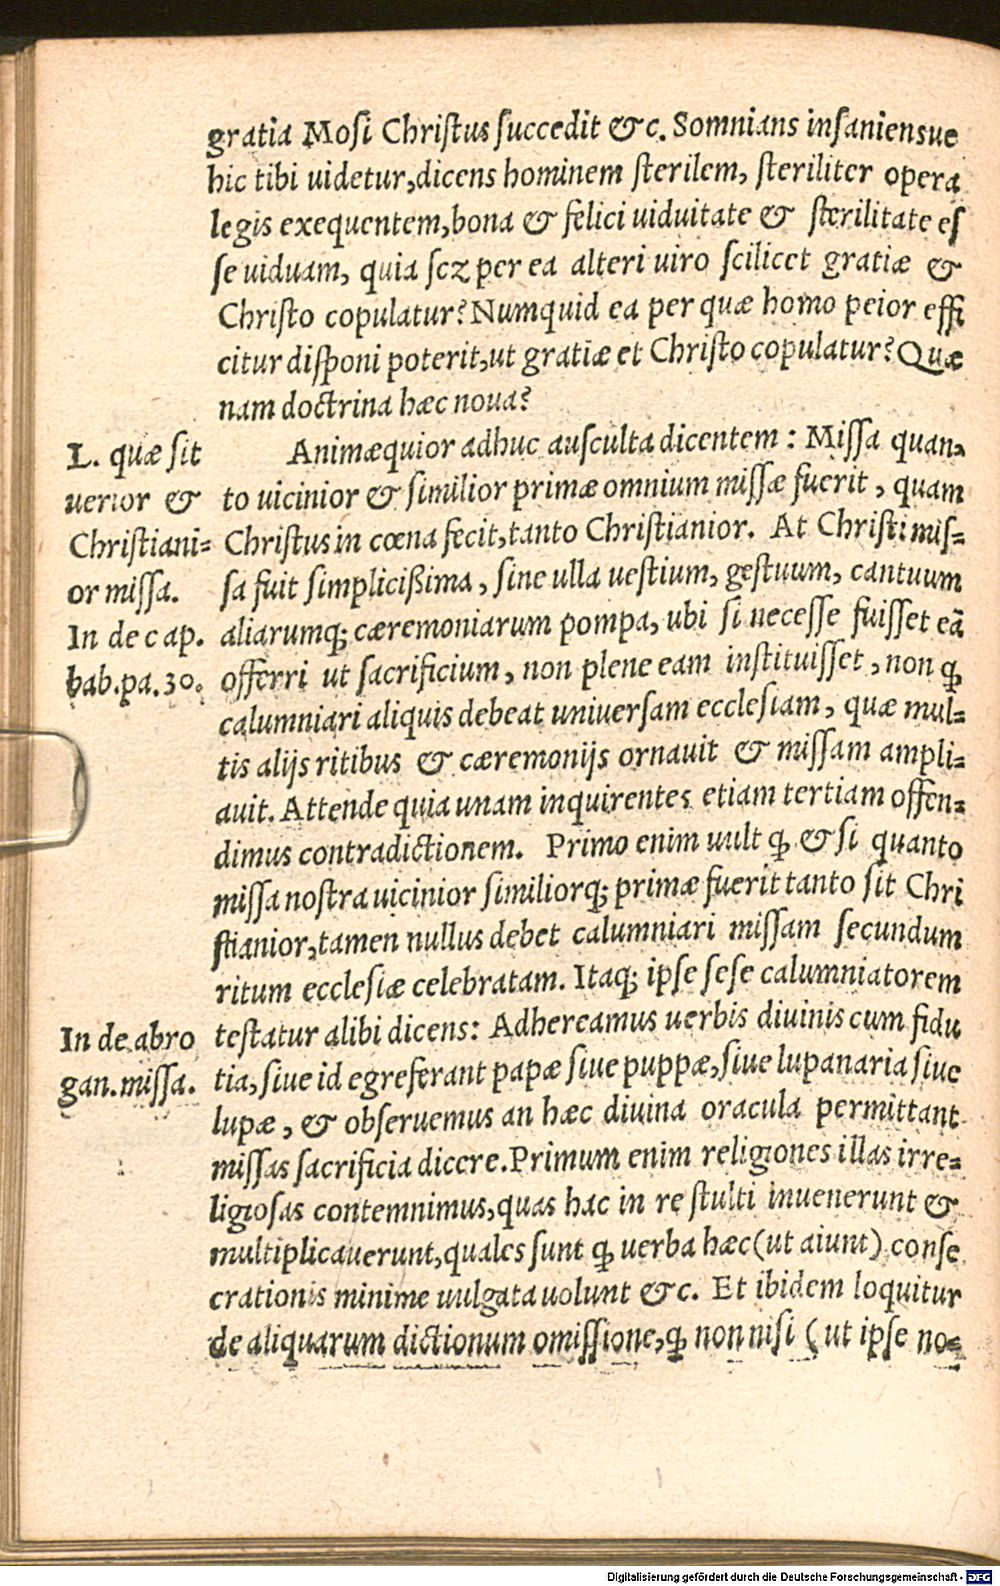 gratia Mosi Christus succedit &c. Somnians insaniensue
hic tibi uidetur, dicens hominem sterilem, steriliter opera
legis exequentem, bona & felici uiduitate & sterilitate es
se uiduam, quia scz per ea alteri uiro scilicet gratiæ &
Christo copulatur? Numquid ea per quæ homo peior effi
citur disponi poterit, ut gratiæ et Christo copulatur? Quæ
nam doctrina hæc noua?
L. quæ sit
uerior &
Christiani=
or missa.
In de cap.
bab. pa. 30.
Animæquior adhuc ausculta dicentem: Missa quan=
to uicinior & similior primæ omnium missæ fuerit, quam
Christus in cœna fecit, tanto Christianior. At Christi mis=
sa fuit simplicißima, sine ulla uestium, gestuum, cantuum
aliarumq; cæremoniarum pompa, ubi si necesse fuisset eã
offerri ut sacrificium, non plene eam instituisset, non ꝙ
calumniari aliquis debeat uniuersam ecclesiam, quæ mul=
tis alijs ritibus & cæremonijs ornauit & missam ampli=
auit. Attende quia unam inquirentes etiam tertiam offen=
dimus contradictionem. Primo enim uult ꝙ & si quanto
missa nostra uicinior similiorq; primæ fuerit tanto sit Chri
stianior, tamen nullus debet calumniari missam secundum
ritum ecclesiæ celebratam. Itaq; ipse sese calumniatorem
In de abro
gan. missa.
testatur alibi dicens: Adhereamus uerbis diuinis cum fidu
tia, siue id egreferant papæ siue puppæ, siue lupanaria siue
lupæ, & obseruemus an hæc diuina oracula permittant
missas sacrificia dicere. Primum enim religiones illas irre=
ligiosas contemnimus, quas hac in re stulti inuenerunt &
multiplicauerunt, quales sunt ꝙ uerba hæc (ut aiunt) conse
crationis minime uulgata uolunt &c. Et ibidem loquitur
de aliquarum dictionum omissione, ꝙ non nisi (ut ipse no=
Digitalisierung gefördert durch die Deutsche Forschungsgemeinschaft - DFG